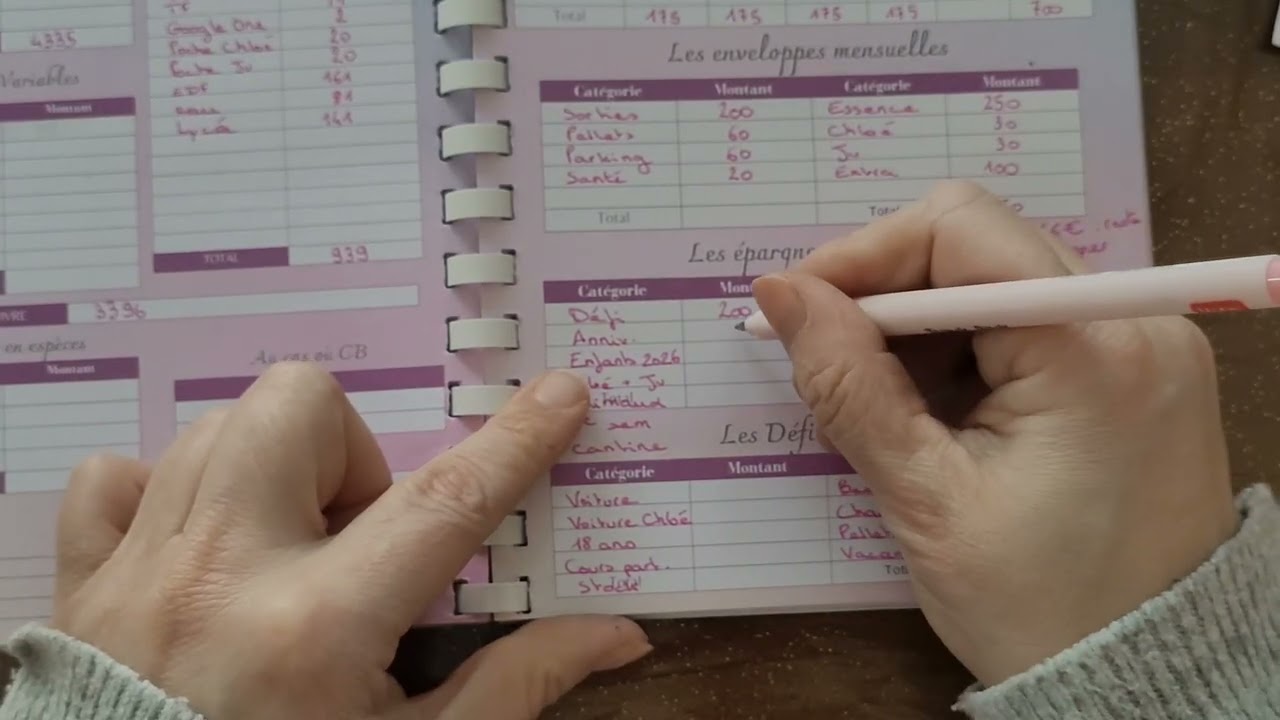 4335
Variables
Montant
2
Google One 20
Forte Chloé 20
Forte Ju 161
EDF 81
Lycée 141
TOTAL 939
IVRE 3396
en espèces
Montant
Au cas où CB
Total 175 175 175 175 700
Les enveloppes mensuelles
Catégorie Montant Catégorie Montant
Sorties 200 Essence 250
Pellets 60 Chloé 30
Parking 60 Ju 30
Santé 20 Extra 100
Total Tot
Les épargn
Catégorie Mon
Défi 200
Anniv.
Enfants 2026
bé + Ju
sem
Cantine
Les Défi
Catégorie Montant
Voiture
Voiture Chloé
18 ans Pellet
Cours part. Vacan
Tot